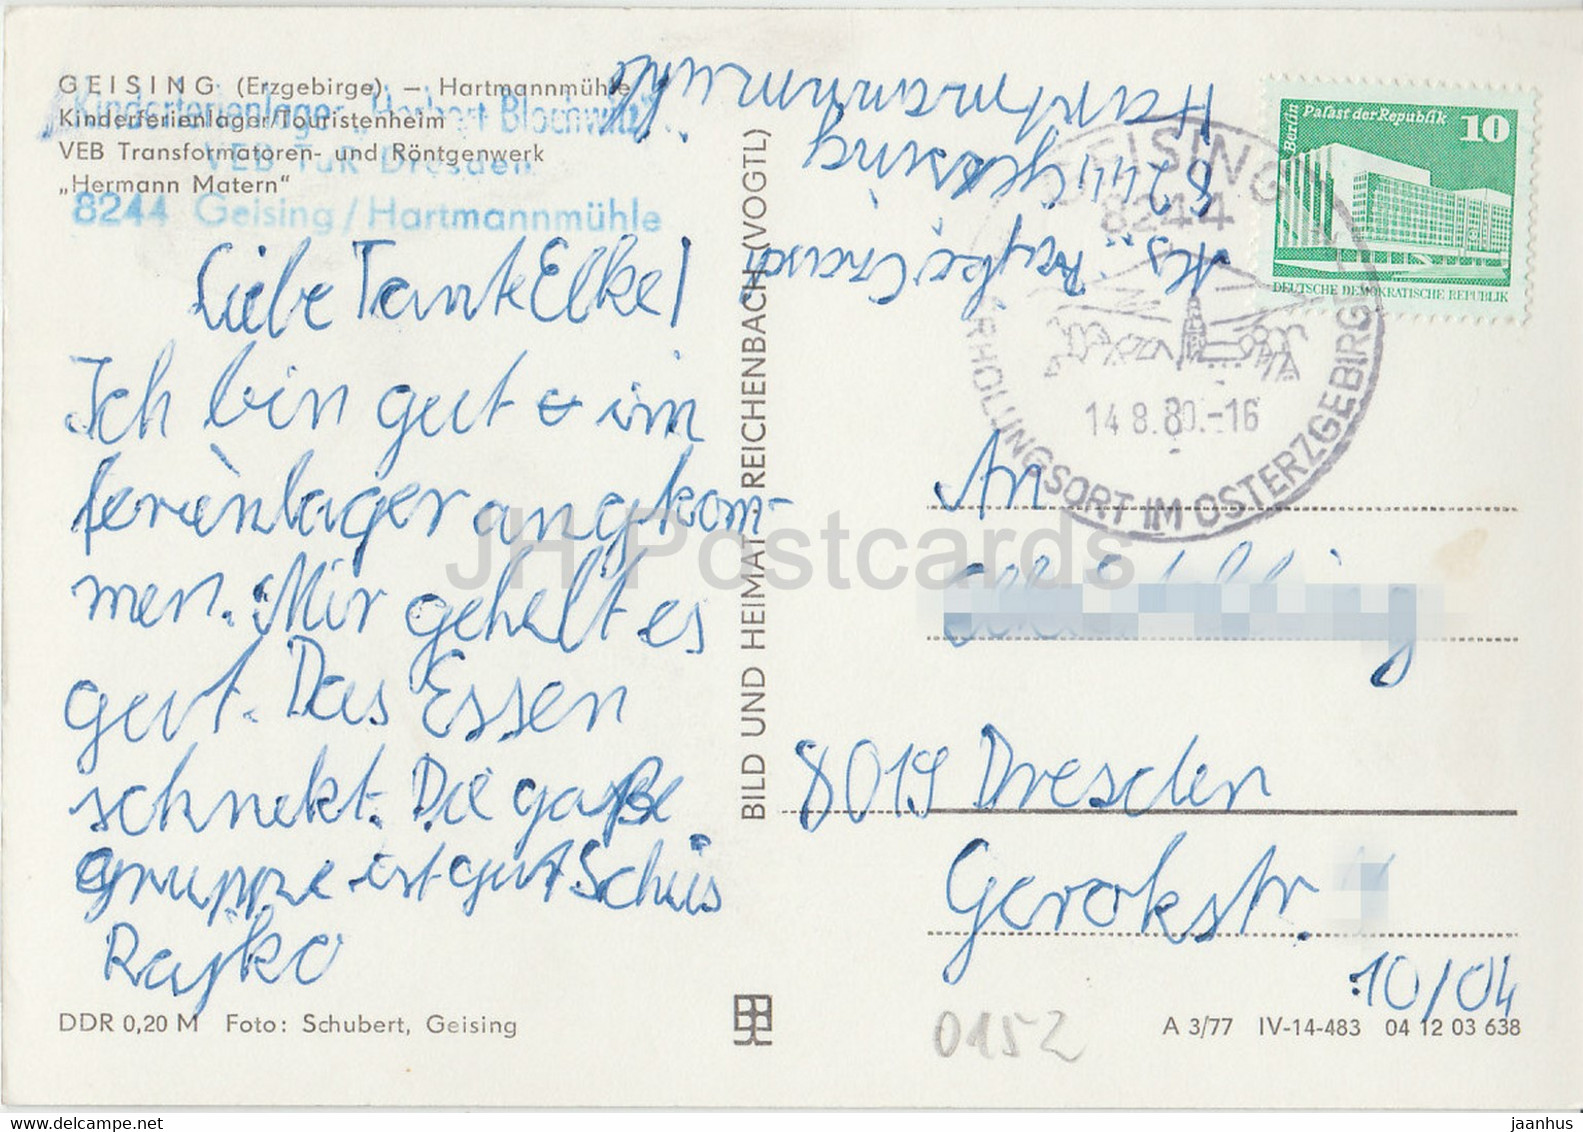 GEISING (Erzgebirge) – Hartmannmühle
Kinderferienlager/Touristenheim
VEB Transformatoren- und Röntgenwerk
„Hermann Matern“
Kinderferienlager „Herbert Blochwitz“
VEB TuR Dresden
8244 Geising/Hartmannmühle
Liebe Tante Elke!
Ich bin gut im
ferienlager angekom-
men. Mir gehelt es
gut. Das Essen
schmekt. Die gaße
gruppe ist gut. Schüs
Rajko
DDR 0,20 M Foto: Schubert, Geising
BILD UND HEIMAT REICHENBACH (VOGTL)
Hartmannmühle
8244 Geising
Rajko
Berlin Palast der Republik 10
DEUTSCHE DEMOKRATISCHE REPUBLIK
GEISING
8244
14.8.80.-16
ERHOLUNGSORT IM OSTERZGEBIRGE
An
8019 Dresden
Gerokstr.
10/04
0152
A 3/77 IV-14-483 04 12 03 638
JH Postcards
www.delcampe.net
jaanhus